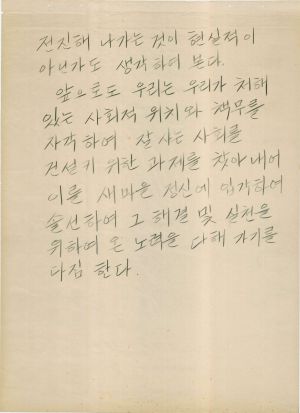 전진해 나가는 것이 현실적이
아닌가도 생각하여 본다.
앞으로도 우리는 우리가 처해
있는 사회적 위치와 책무를
자각하여 잘 사는 사회를
건설키 위한 과제를 찾아내어
이를 새마을 정신에 입각하여
솔선하여 그 해결 및 실천을
위하여 온 노력을 다해 가기를
다짐 한다.